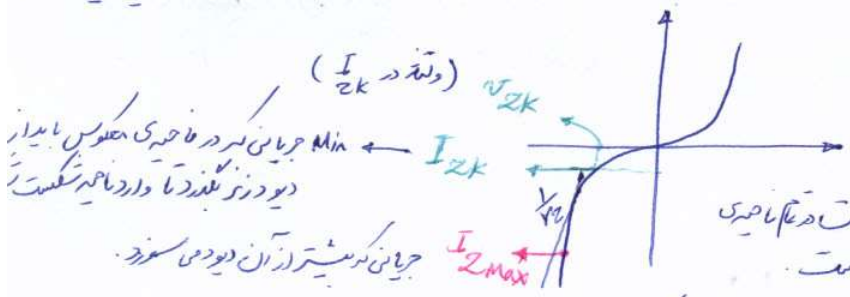 (ولتاژ در I_ZK) V_ZK
I_ZK ← Min جریانی که در ناحیه ی معکوس باید از
دیود زنر بگذرد تا وارد ناحیه شکست
1/rz
ناحیه ی
I_ZMax جریانی که بیشتر از آن دیود می سوزد.